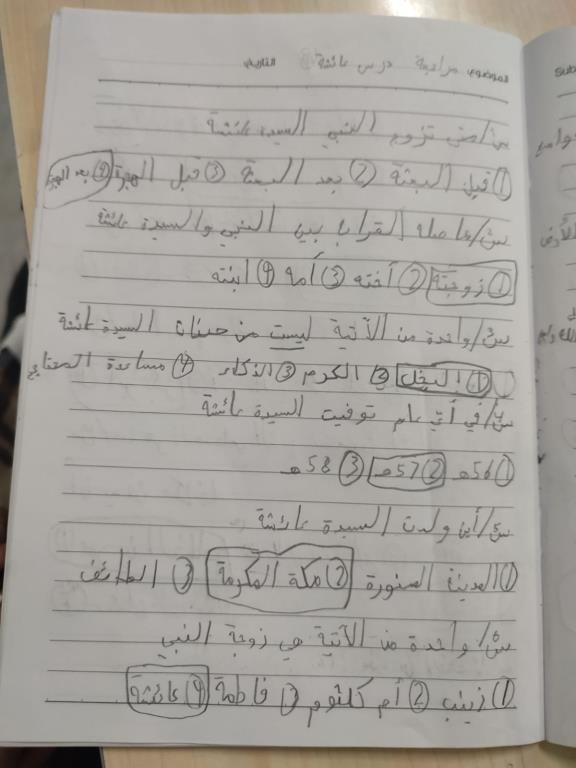 الموضوع: مراجعة درس عائشة التاريخ:
س١/متى تزوج النبي السيدة عائشة
① قبل البعثة ② بعد البعثة ③ قبل الهجرة ④ بعد الهجرة
س٢/ما صلة القرابا بين النبي والسيدة عائشة
① زوجتة ② أخته ③ أمه ④ ابنته
س٣/واحدة من الآتية ليست من صفات السيدة عائشة
① البخل ② الكرم ③ الذكاء ④ مساعدة المحتاج
س٤/في أي عام توفيت السيدة عائشة
① 56هـ ② 57هـ ③ 58هـ
س٥/أين ولدت السيدة عائشة
① المدينة المنورة ② مكة المكرمة ③ الطائف
س٦/واحدة من الآتية هي زوجة النبي
① زينب ② أم كلثوم ③ فاطمة ④ عائشة